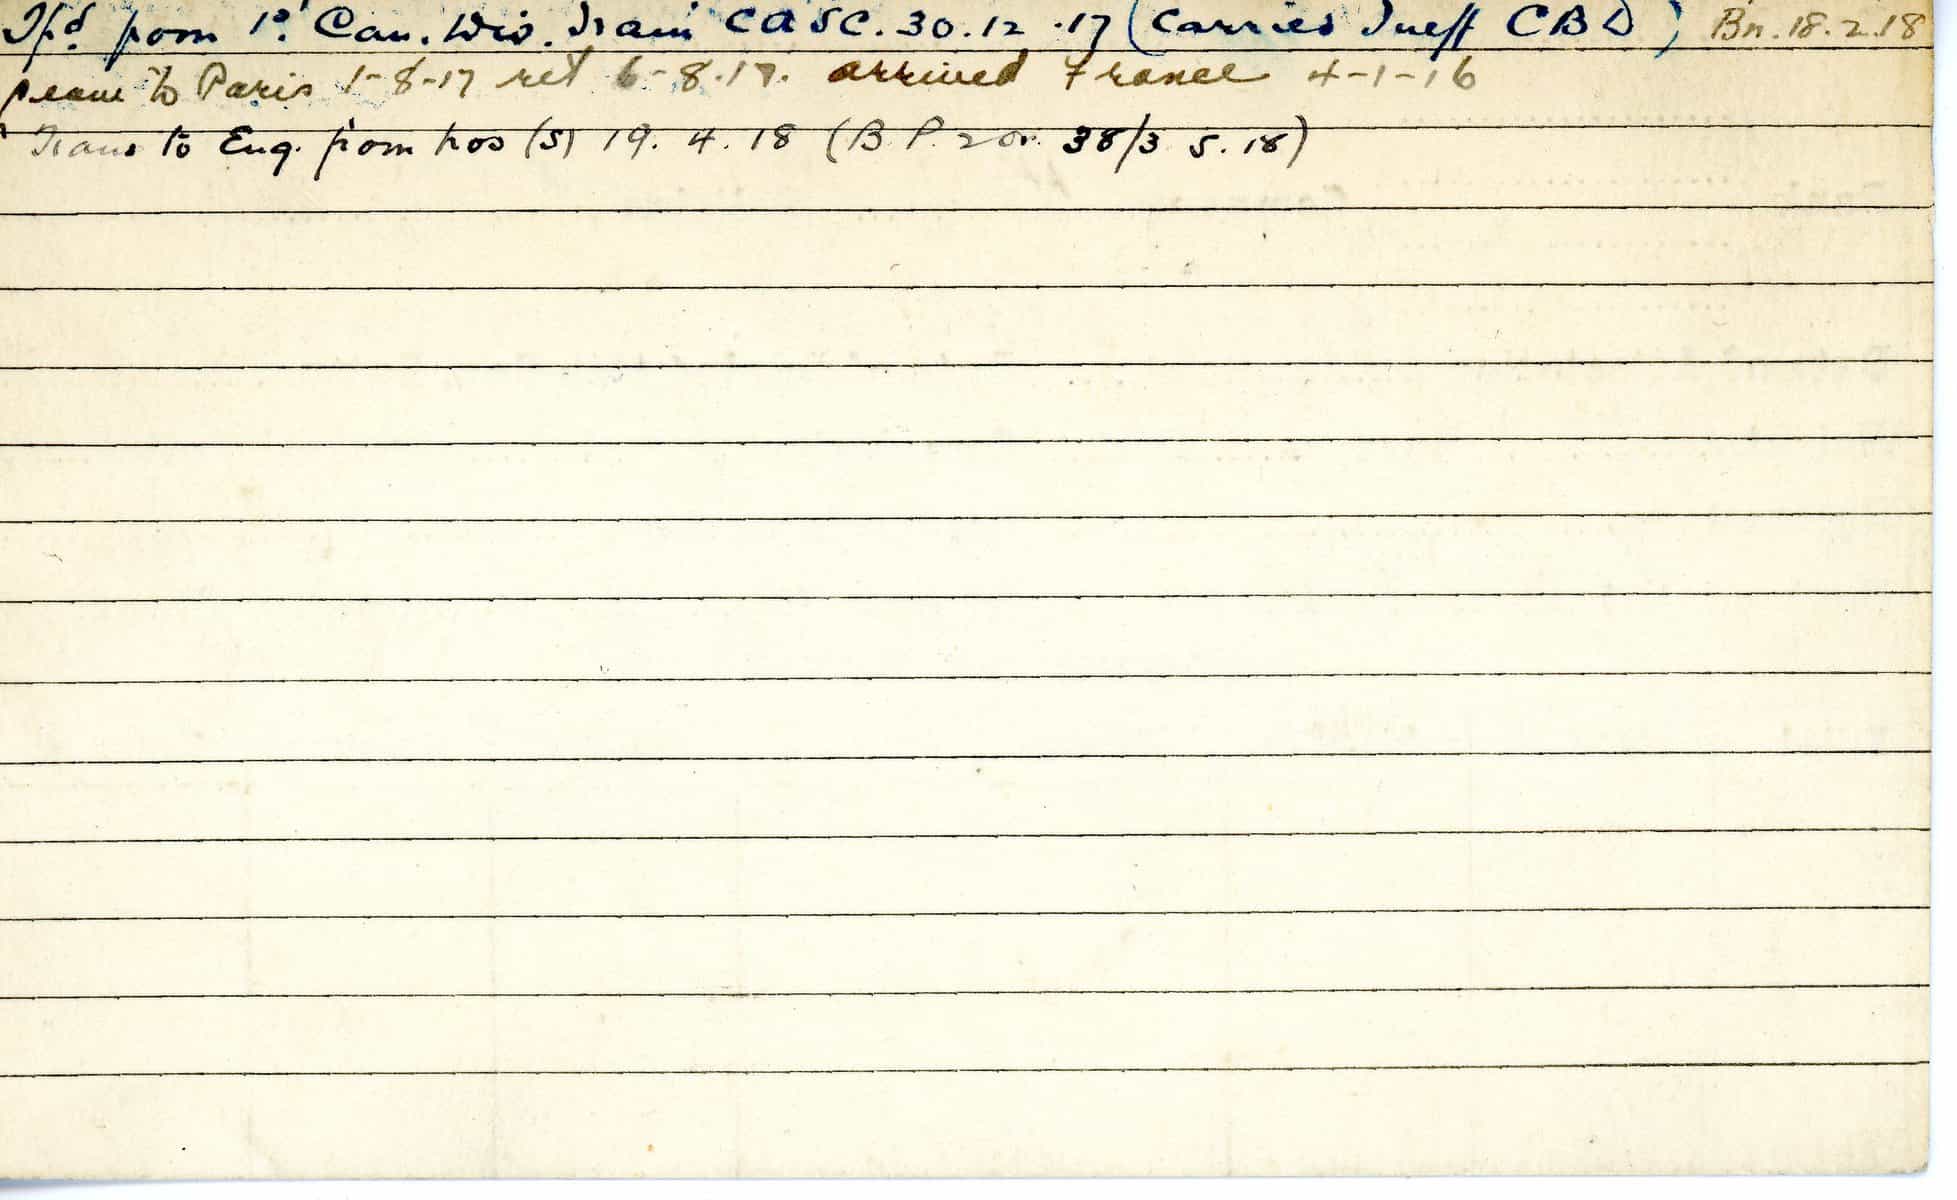 Tfd from 1st Can. Div. Train CASC. 30.12.17 (Carried Ineff CBD) Bn. 18.2.18
Leave to Paris 1-8-17 ret 6-8-17. arrived France 4-1-16
Trans to Eng. from hos (S) 19.4.18 (B P. 2 Or. 38/3 5.18)